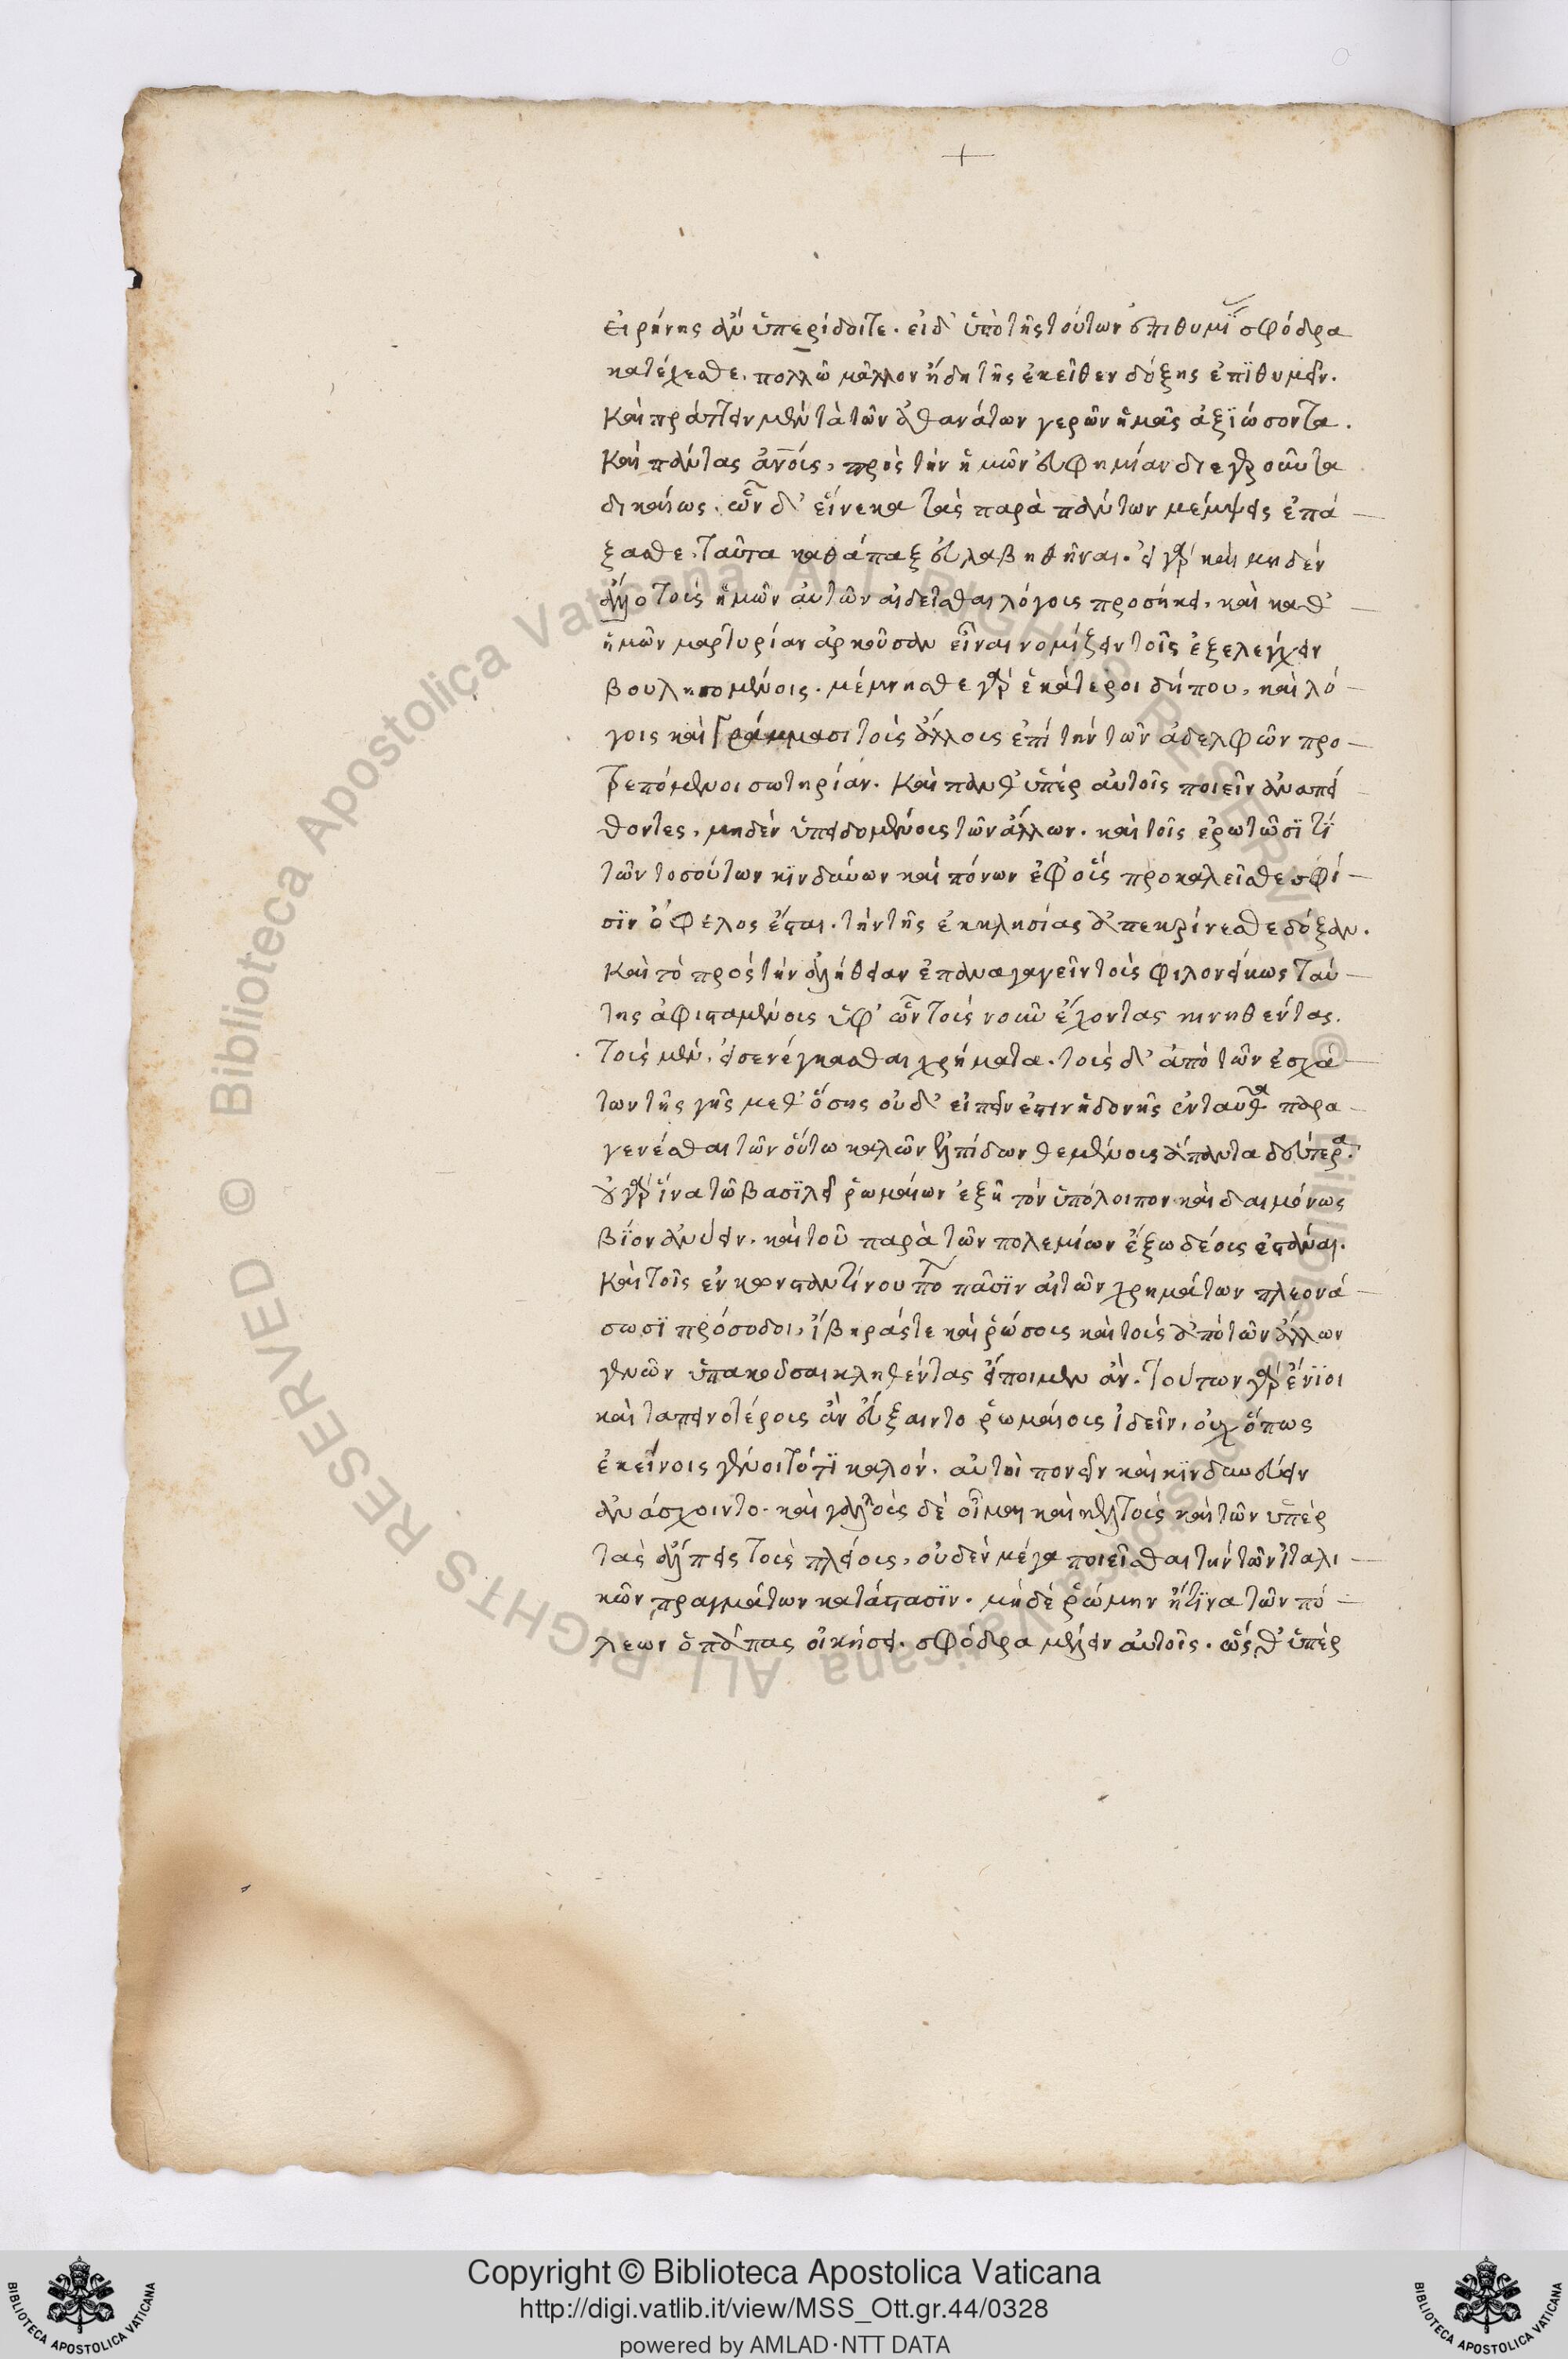 εἰρήνης ἂν ὑπερίδοιτε. εἰ δ' ὑπὸ τῆς τούτων ἐπιθυμί σφόδρα
κατέχεσθε, πολλῶ μᾶλλον ἤδη τῆς ἐκεῖθεν δόξης ἐπϊθυμεῖν.
Καὶ πράττειν μὲν τὰ τῶν ἀθανάτων γερῶν ἡμᾶς ἀξϊώσοντα.
Καὶ πάντας ἀνοίς, πρὸς τὴν ἡμῶν εὐφημίαν διεγεροῦντα
δικαίως. ὧν δ' εἵνεκα τὰς παρὰ πάντων μέμψεις ἐπά-
ξασθε, ταῦτα καθάπαξ εὐλαβηθῆναι. εἰ γὰρ καὶ μηδέν
ἄλλο τοὺς ἡμῶν αὐτῶν αἰδεῖσθαι λόγους προσήκει, καὶ καθ'
ἡμῶν μαρτυρίαν ἀρκοῦσαν εἶναι νομίζειν τοῖς ἐξελεγχειν
βουλησομένοις. μέμνησθε γὰρ ἑκάτεροι δήπου, καὶ λό-
γοις καὶ Γράμμασι τοὺς ἄλλους ἐπὶ τὴν τῶν ἀδελφῶν προ-
τρεπόμενοι σωτηρίαν. Καὶ πάνθ' ὑπὲρ αὐτοῖς ποιεῖν ἀναπεί-
θοντες, μηδὲν ὑπειδομένους τῶν ἄλλων. καὶ τοῖς ἐρωτῶσϊ τί
τῶν τοσούτων κϊνδύνων καὶ πόνων ἐφ' οὓς προκαλεῖσθε σφί-
σϊν ὄφελος ἔσται. τὴν τῆς ἐκκλησίας ἀπεκρίνεσθε δόξαν.
Καὶ τὸ πρὸς τὴν ἀλήθειαν ἐπαναγαγεῖν τοὺς φιλονείκως ταύ-
της ἀφισταμένους ὑφ' ὧν τοὺς νοῦν ἔχοντας κινηθέντας.
Τοὺς μὲν, εἰσενέγκασθαι χρήματα. τοὺς δ' ἀπὸ τῶν ἐσχά-
των τῆς γῆς μεθ' ὅσης οὐδ' εἰπεῖν ἐστιν ἡδονῆς ἐνταῦθα παρα-
γενέσθαι τῶν οὕτω καλῶν ἐλπίδων θεμένους ἅπαντα δεύτερα.
οὐ γὰρ ἵνα τῶ βασϊλεῖ ῥωμαίων ἐξῆ τὸν ὑπόλοιπον καὶ δαιμόνως
βίον ἀνύειν. καὶ τοῦ παρὰ τῶν πολεμίων ἔξω δέους ἑστάναι.
Καὶ τοῖς ἐν κωνσταντίνου πο πᾶσϊν αἱ τῶν χρημάτων πλεονά-
σωσϊ πρόσοδοι, ἴβηράς τε καὶ ῥώσους καὶ τοὺς ἀπὸ τῶν ἄλλων
γενῶν ὑπακοῦσαι κληθέντας εἴποιμεν ἄν. τούτων γὰρ ἔνϊοι
καὶ ταπεινοτέρους ἂν εὔξαιντο ῥωμαίους ἰδεῖν, οὐχ ὅπως
ἐκείνοις γένοιτό τϊ καλόν. αὐτοὶ πονεῖν καὶ κϊνδυνεύειν
ἀνάσχοιντο. καὶ γάλλους δὲ οἶμαι καὶ κελτοὺς καὶ τῶν ὑπὲρ
τὰς ἄλπεις τοὺς πλείους, οὐδὲν μέγα ποιεῖσθαι τὴν τῶν ἰταλι-
κῶν πραγμάτων κατάστασϊν. μηδὲ ῥώμην ἥτϊνα τῶν πό-
λεων ὁ πάπας οἰκήσει. σφόδρα μέλειν αὐτοῖς. ὥσθ' ὑπὲρ
Copyright © Biblioteca Apostolica Vaticana
http://digi.vatlib.it/view/MSS_Ott.gr.44/0328
powered by AMLAD·NTT DATA